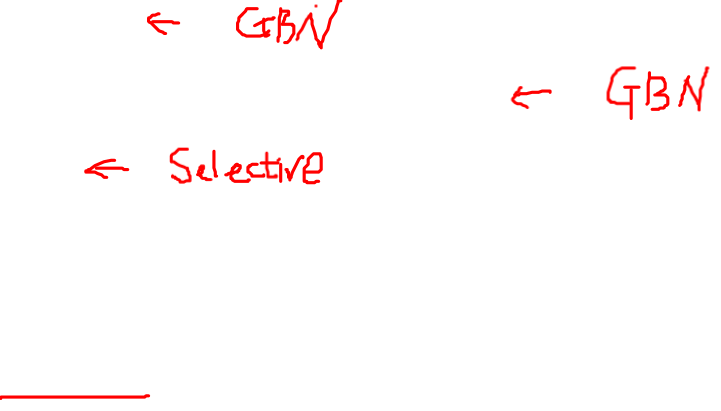 ← GBN
← GBN
← Selective